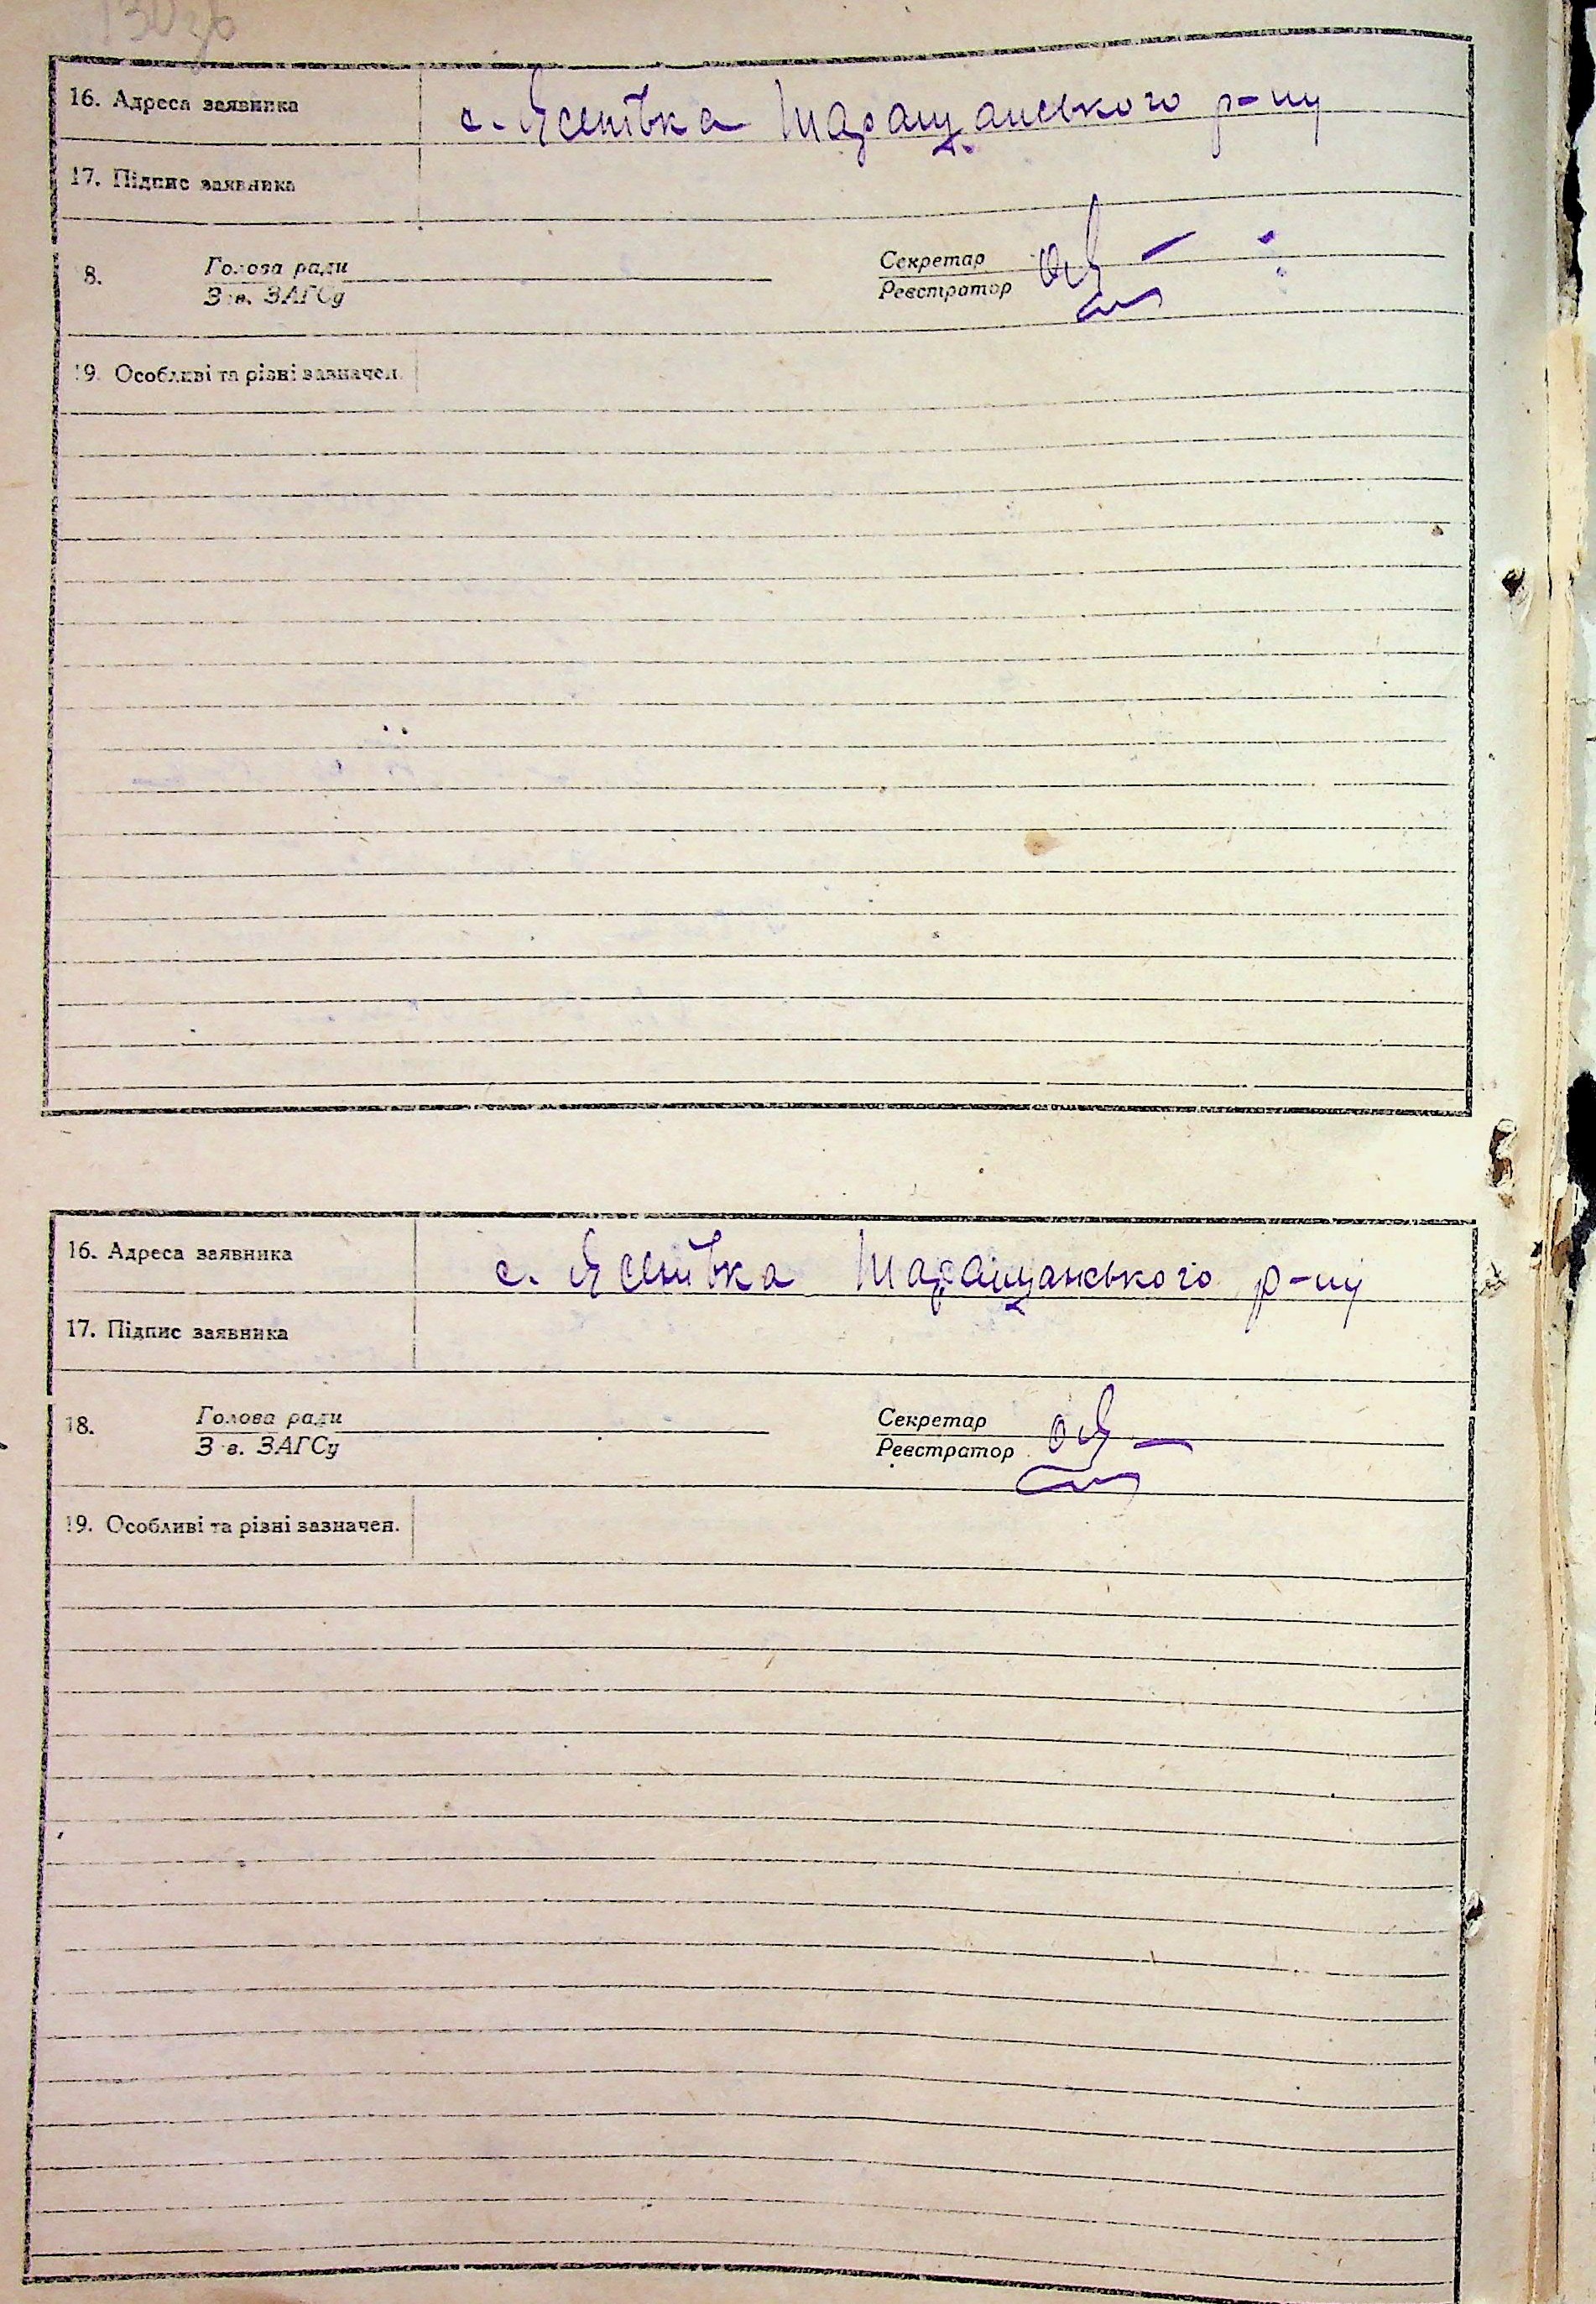 130зв
16. Адреса заявника с. Ясенівка Таращанського р-ну
17. Підпис заявника
8. Голова ради Секретар
Зав. ЗАГСу Реєстратор
19. Особливі та різні зазначен.
16. Адреса заявника с. Ясенівка Таращанського р-ну
17. Підпис заявника
18. Голова ради Секретар
Зав. ЗАГСу Реєстратор
19. Особливі та різні зазначен.